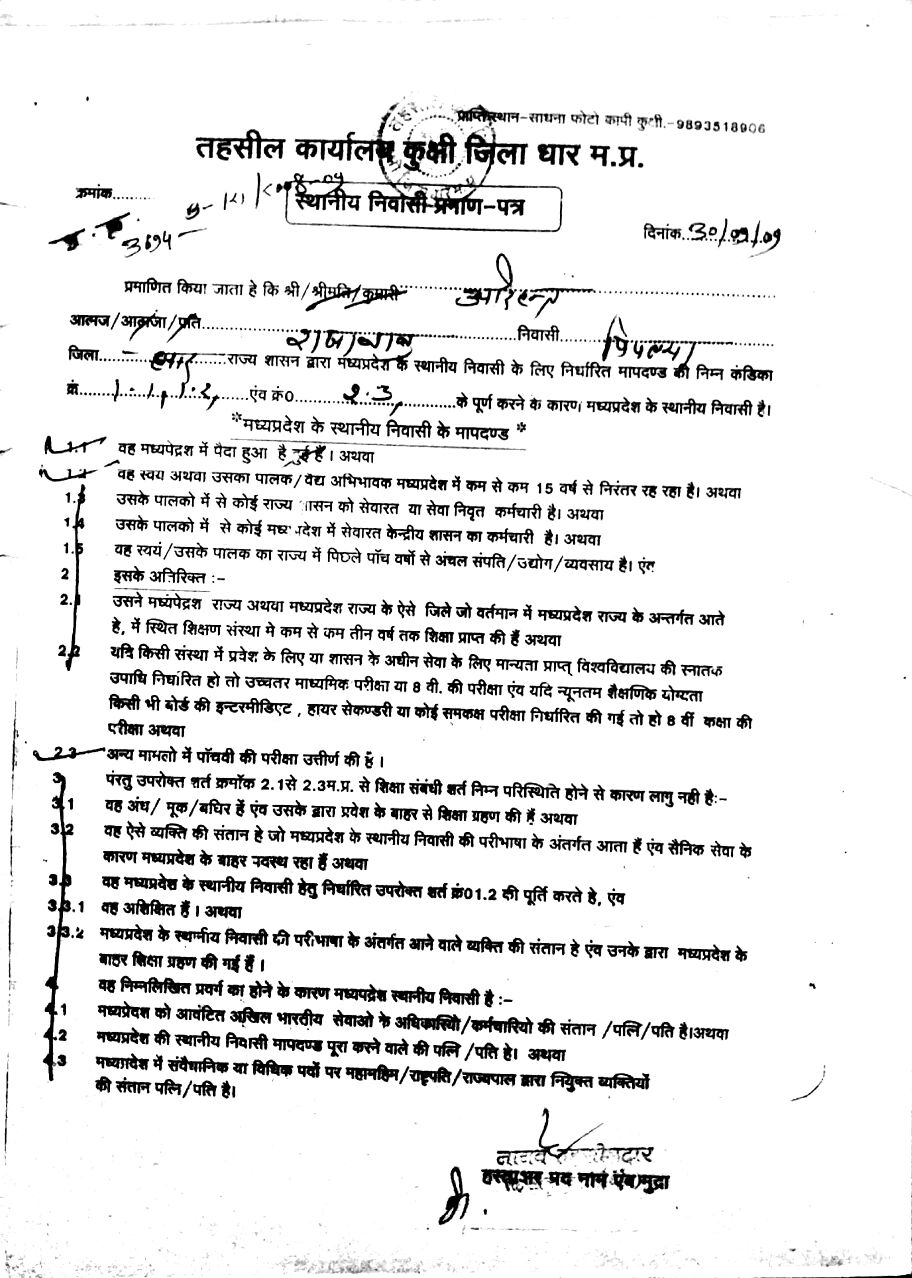 प्राप्तिस्थान-साधना फोटो कापी कुक्षी.-9893518906
तहसील कार्यालय कुक्षी जिला धार म.प्र.
क्रमांक...........
स्थानीय निवासी प्रमाण-पत्र
3694
दिनांक..30/09/09
प्रमाणित किया जाता हे कि श्री/श्रीमति/कुमारी
आत्मज/आत्मजा/प्रति..................निवासी
जिला..........राज्य शासन द्वारा मध्यप्रदेश के स्थानीय निवासी के लिए निर्धारित मापदण्ड की निम्न कंडिका
क्रं.....1.1, 1.2, ....एंव क्रं0......2.3, ..........के पूर्ण करने के कारण मध्यप्रदेश के स्थानीय निवासी है।
*मध्यप्रदेश के स्थानीय निवासी के मापदण्ड *
1.1 वह मध्यपेद्रश में पैदा हुआ है हुई हैं। अथवा
1.2 वह स्वय अथवा उसका पालक/वैद्य अभिभावक मध्यप्रदेश में कम से कम 15 वर्ष से निरंतर रह रहा है। अथवा
1.3 उसके पालको में से कोई राज्य शासन को सेवारत या सेवा निवृत कर्मचारी है। अथवा
1.4 उसके पालको में से कोई मध्यप्रदेश में सेवारत केन्द्रीय शासन का कर्मचारी है। अथवा
1.5 वह स्वयं/उसके पालक का राज्य में पिछले पॉच वर्षो से अंचल संपति/उद्योग/व्यवसाय है। एंव
2 इसके अतिरिक्त :-
2.1 उसने मध्यंपेद्रश राज्य अथवा मध्यप्रदेश राज्य के ऐसे जिले जो वर्तमान में मध्यप्रदेश राज्य के अन्तर्गत आते
हे, में स्थित शिक्षण संस्था मे कम से कम तीन वर्ष तक शिक्षा प्राप्त की हैं अथवा
2.2 यदि किसी संस्था में प्रवेश के लिए या शासन के अधीन सेवा के लिए मान्यता प्राप्त् विश्वविद्यालय की स्नातक
उपाधि निर्धारित हो तो उच्चतर माध्यमिक परीक्षा या 8 वी. की परीक्षा एंव यदि न्यूनतम शैक्षणिक योग्यता
किसी भी बोर्ड की इन्टरमीडिएट , हायर सेकण्डरी या कोई समकक्ष परीक्षा निर्धारित की गई तो हो 8 वीं कक्षा की
परीक्षा अथवा
2.3 अन्य मामलो में पॉचवी की परीक्षा उत्तीर्ण की है ।
3 पंरतु उपरोक्त शर्त क्रमॉक 2.1से 2.3म.प्र. से शिक्षा संबंधी शर्त निम्न परिस्थिति होने से कारण लागु नही है:-
3.1 वह अंध/ मूक/बधिर हें एंव उसके द्वारा प्रवेश के बाहर से शिक्षा ग्रहण की हैं अथवा
3.2 वह ऐसे व्यक्ति की संतान हे जो मध्यप्रदेश के स्थानीय निवासी की परीभाषा के अंतर्गत आता हैं एंव सैनिक सेवा के
कारण मध्यप्रदेश के बाहर पदस्थ रहा हैं अथवा
3.3 वह मध्यप्रदेश के स्थानीय निवासी हेतु निर्धारित उपरोक्त शर्त क्रं01.2 की पूर्ति करते हे, एंव
3.3.1 वह अशिक्षित हैं । अथवा
3.3.2 मध्यप्रदेश के स्थानीय निवासी की परीभाषा के अंतर्गत आने वाले व्यक्ति की संतान हे एंव उनके द्वारा मध्यप्रदेश के
बाहर शिक्षा ग्रहण की गई हैं ।
4 वह निम्नलिखित प्रवर्ग का होने के कारण मध्यपद्रेश स्थानीय निवासी है :-
4.1 मध्यप्रेदश को आवंटित अखिल भारतीय सेवाओ के अधिकारियो/कर्मचारियो की संतान /पत्नि/पति है।अथवा
4.2 मध्यप्रदेश की स्थानीय निवासी मापदण्ड पूरा करने वाले की पत्नि /पति हे। अथवा
4.3 मध्यप्रदेश में संवैधानिक या विधिक पदों पर महामहिम/राष्ट्रपति/राज्यपाल द्वारा नियुक्त व्यक्तियों
की संतान पत्नि/पति है।
हस्ताक्षर प्रद नाम एंव मुद्रा